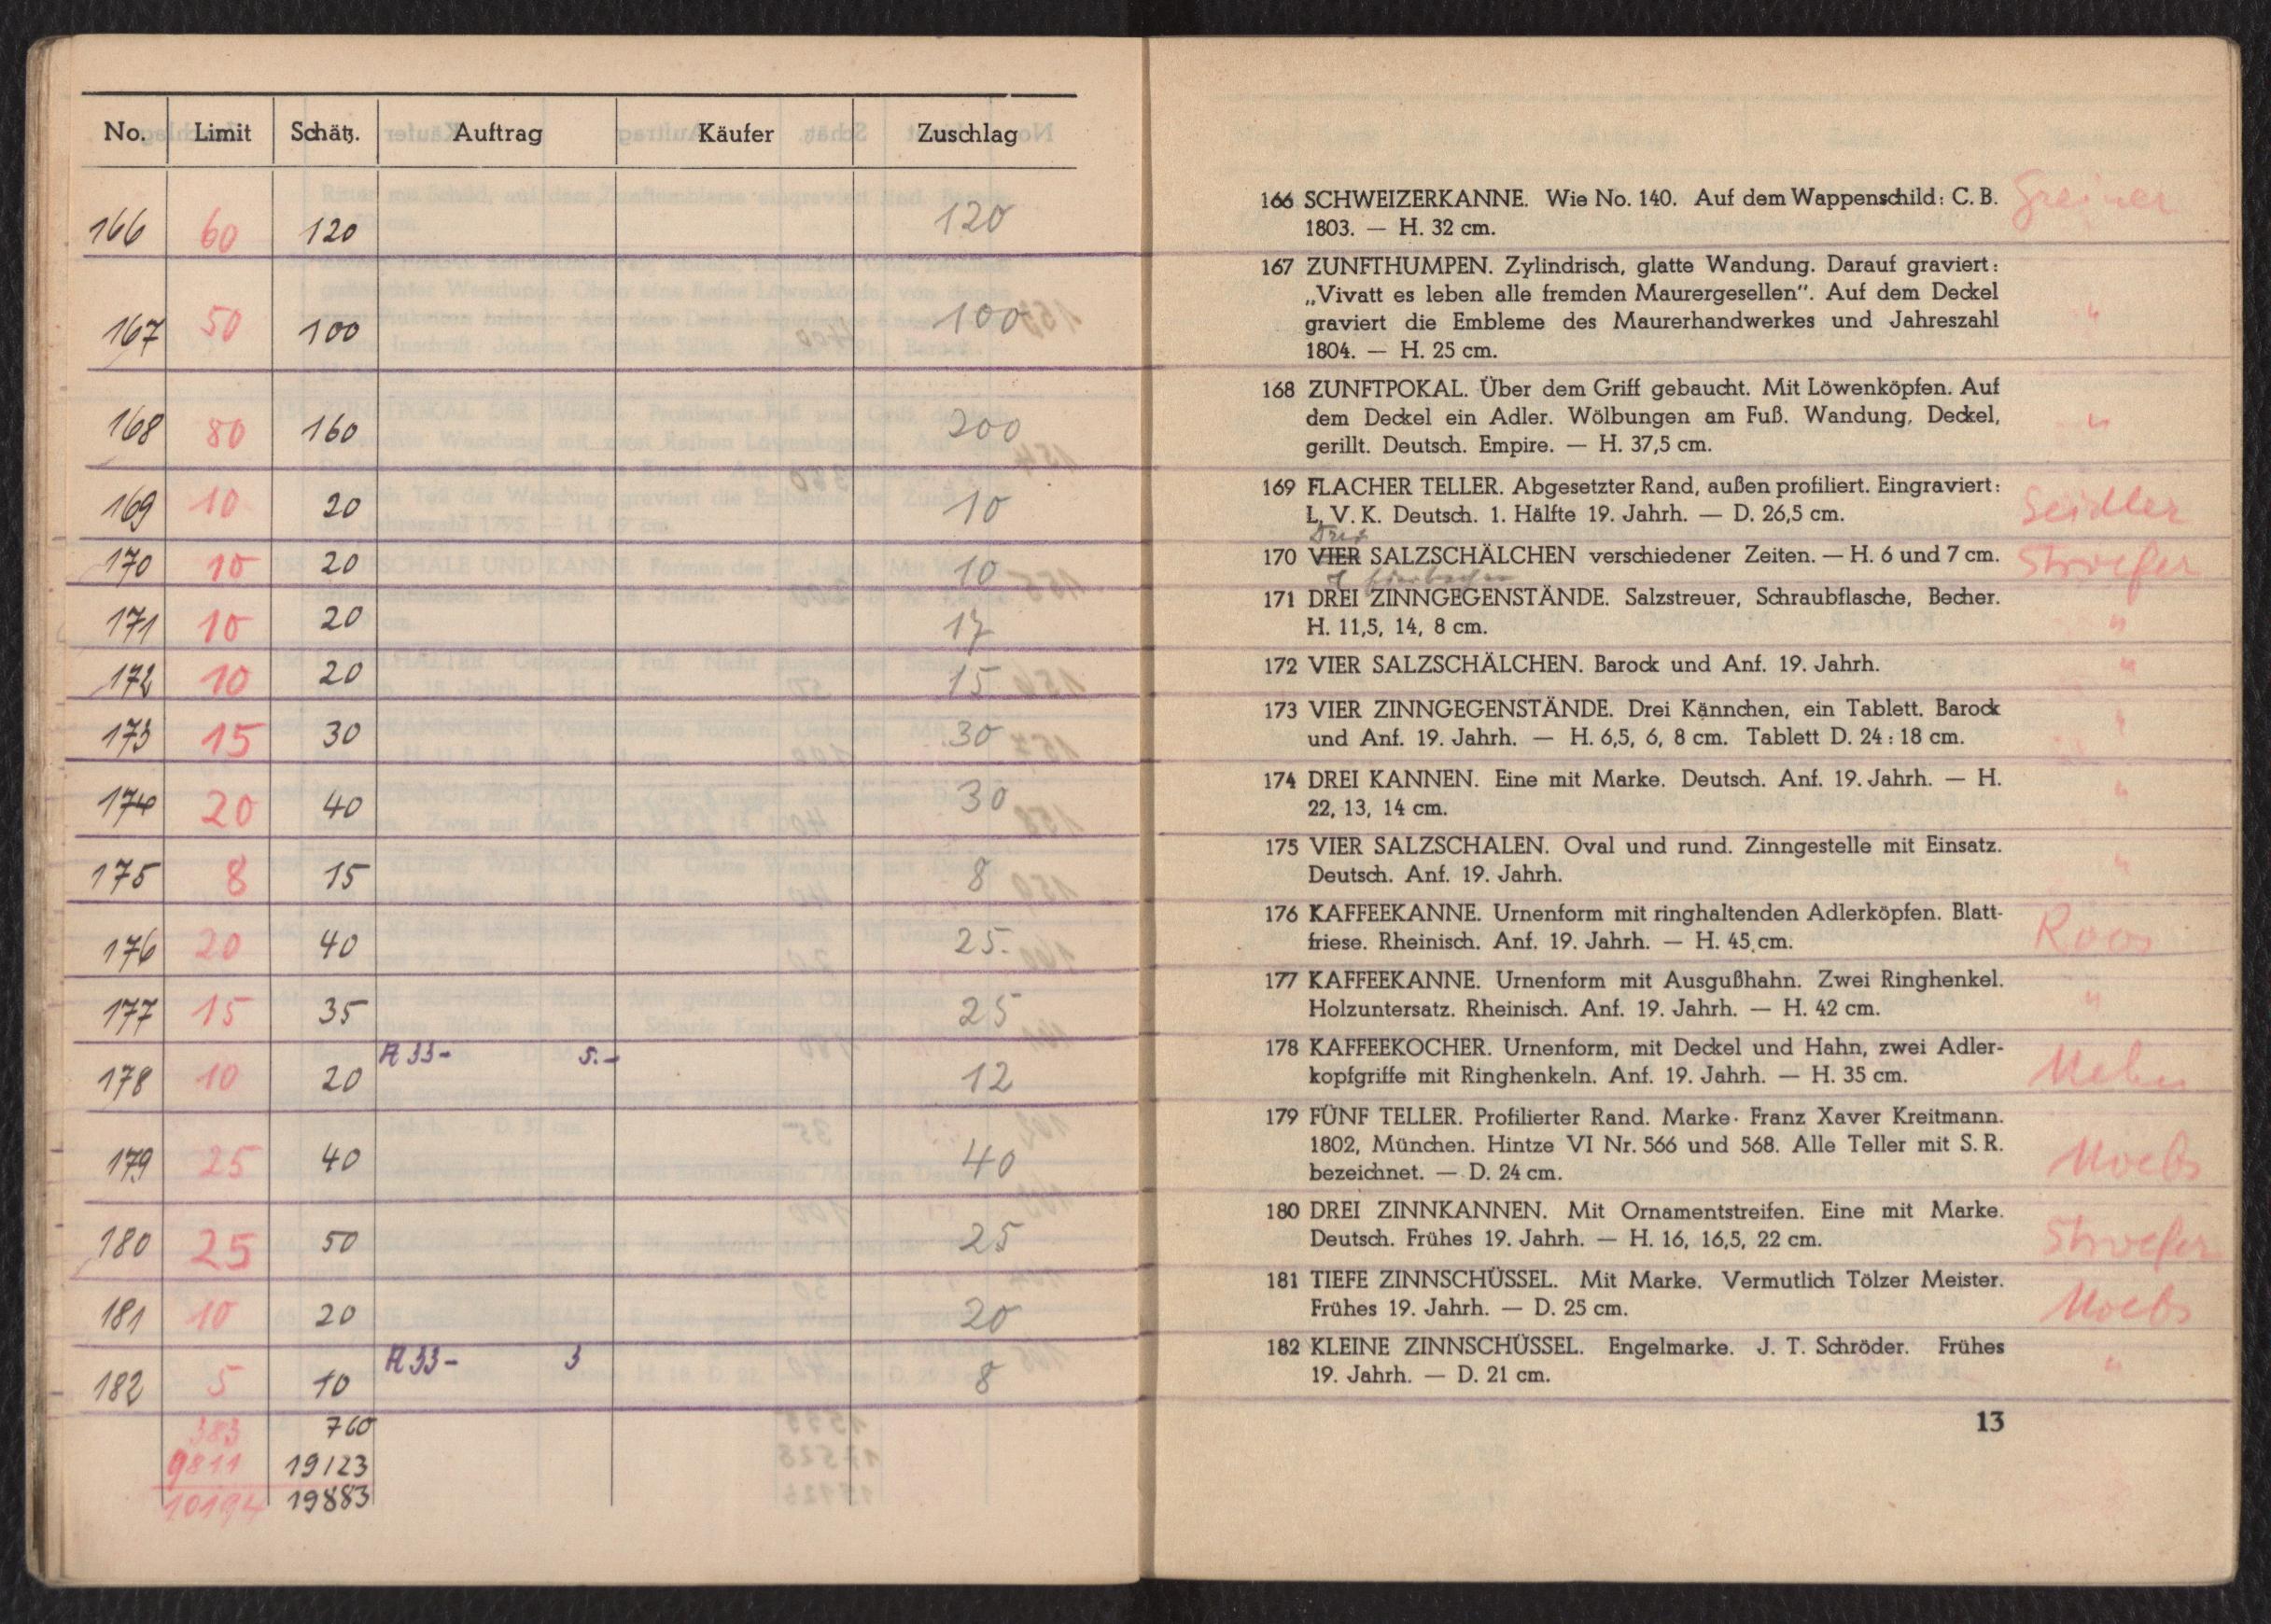 No. Limit Schätz. Auftrag Käufer Zuschlag
166 60 120 120
167 50 100 100
168 80 160 200
169 10 20 10
170 10 20 10
171 10 20 17
172 10 20 15
173 15 30 30
174 20 40 30
175 8 15 8
176 20 40 25.
177 15 35 25
178 10 20 A 33- 5.- 12
179 25 40 40
180 25 50 25
181 10 20 20
182 5 10 A 33- 3 8
383 760
9811 19123
10194 19883
166 SCHWEIZERKANNE. Wie No. 140. Auf dem Wappenschild: C. B. Greiner
1803. — H. 32 cm.
167 ZUNFTHUMPEN. Zylindrisch, glatte Wandung. Darauf graviert:
„Vivatt es leben alle fremden Maurergesellen". Auf dem Deckel
graviert die Embleme des Maurerhandwerkes und Jahreszahl "
1804. — H. 25 cm.
168 ZUNFTPOKAL. Über dem Griff gebaucht. Mit Löwenköpfen. Auf
dem Deckel ein Adler. Wölbungen am Fuß. Wandung, Deckel, "
gerillt. Deutsch. Empire. — H. 37,5 cm.
169 FLACHER TELLER. Abgesetzter Rand, außen profiliert. Eingraviert:
L. V. K. Deutsch. 1. Hälfte 19. Jahrh. — D. 26,5 cm. Seidler
Drei
170 VIER SALZSCHÄLCHEN verschiedener Zeiten. — H. 6 und 7 cm. Stroefer
171 DREI ZINNGEGENSTÄNDE. Salzstreuer, Schraubflasche, Becher.
H. 11,5, 14, 8 cm. "
172 VIER SALZSCHÄLCHEN. Barock und Anf. 19. Jahrh. "
173 VIER ZINNGEGENSTÄNDE. Drei Kännchen, ein Tablett. Barock "
und Anf. 19. Jahrh. — H. 6,5, 6, 8 cm. Tablett D. 24 : 18 cm.
174 DREI KANNEN. Eine mit Marke. Deutsch. Anf. 19. Jahrh. — H. "
22, 13, 14 cm.
175 VIER SALZSCHALEN. Oval und rund. Zinngestelle mit Einsatz. "
Deutsch. Anf. 19. Jahrh.
176 KAFFEEKANNE. Urnenform mit ringhaltenden Adlerköpfen. Blatt-
friese. Rheinisch. Anf. 19. Jahrh. — H. 45 cm. Roos
177 KAFFEEKANNE. Urnenform mit Ausgußhahn. Zwei Ringhenkel. "
Holzuntersatz. Rheinisch. Anf. 19. Jahrh. — H. 42 cm.
178 KAFFEEKOCHER. Urnenform, mit Deckel und Hahn, zwei Adler-
kopfgriffe mit Ringhenkeln. Anf. 19. Jahrh. — H. 35 cm.
179 FÜNF TELLER. Profilierter Rand. Marke· Franz Xaver Kreitmann.
1802, München. Hintze VI Nr. 566 und 568. Alle Teller mit S. R.
bezeichnet. — D. 24 cm. Moebs
180 DREI ZINNKANNEN. Mit Ornamentstreifen. Eine mit Marke.
Deutsch. Frühes 19. Jahrh. — H. 16, 16,5, 22 cm. Stroefer
181 TIEFE ZINNSCHÜSSEL. Mit Marke. Vermutlich Tölzer Meister.
Frühes 19. Jahrh. — D. 25 cm. Moebs
182 KLEINE ZINNSCHÜSSEL. Engelmarke. J. T. Schröder. Frühes "
19. Jahrh. — D. 21 cm.
13